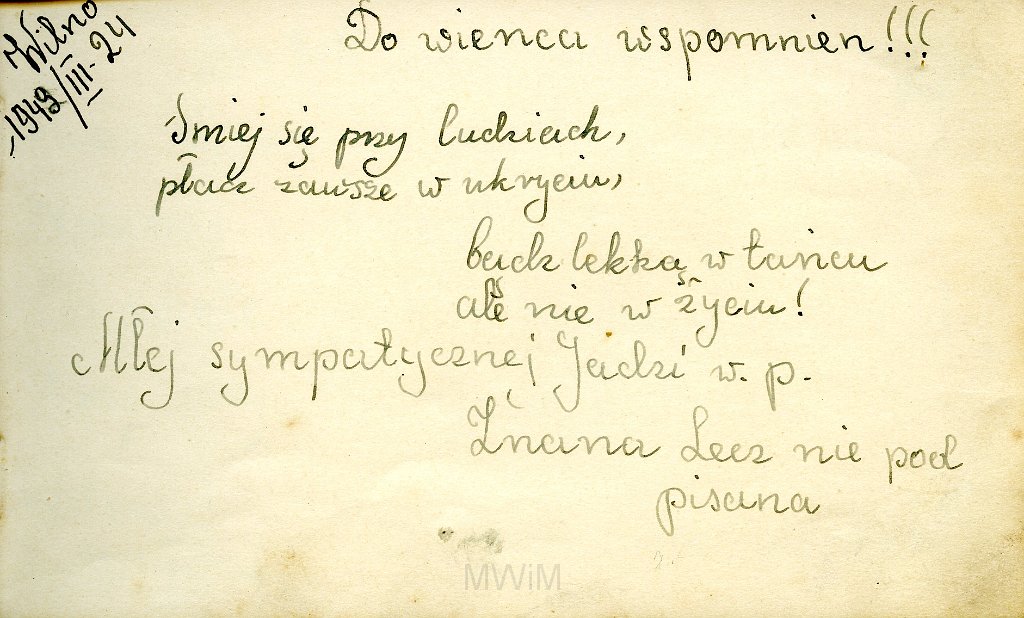 Wilno
1949/III-24
Do wienca wspomnien!!!
Śmiej się przy ludziach,
płacz zawsze w ukryciu,
badz lekką w tańcu
ale nie w życiu!
Młej sympatycznej Jadzi w. p.
Znana Lecz nie pod
pisana
MWiM